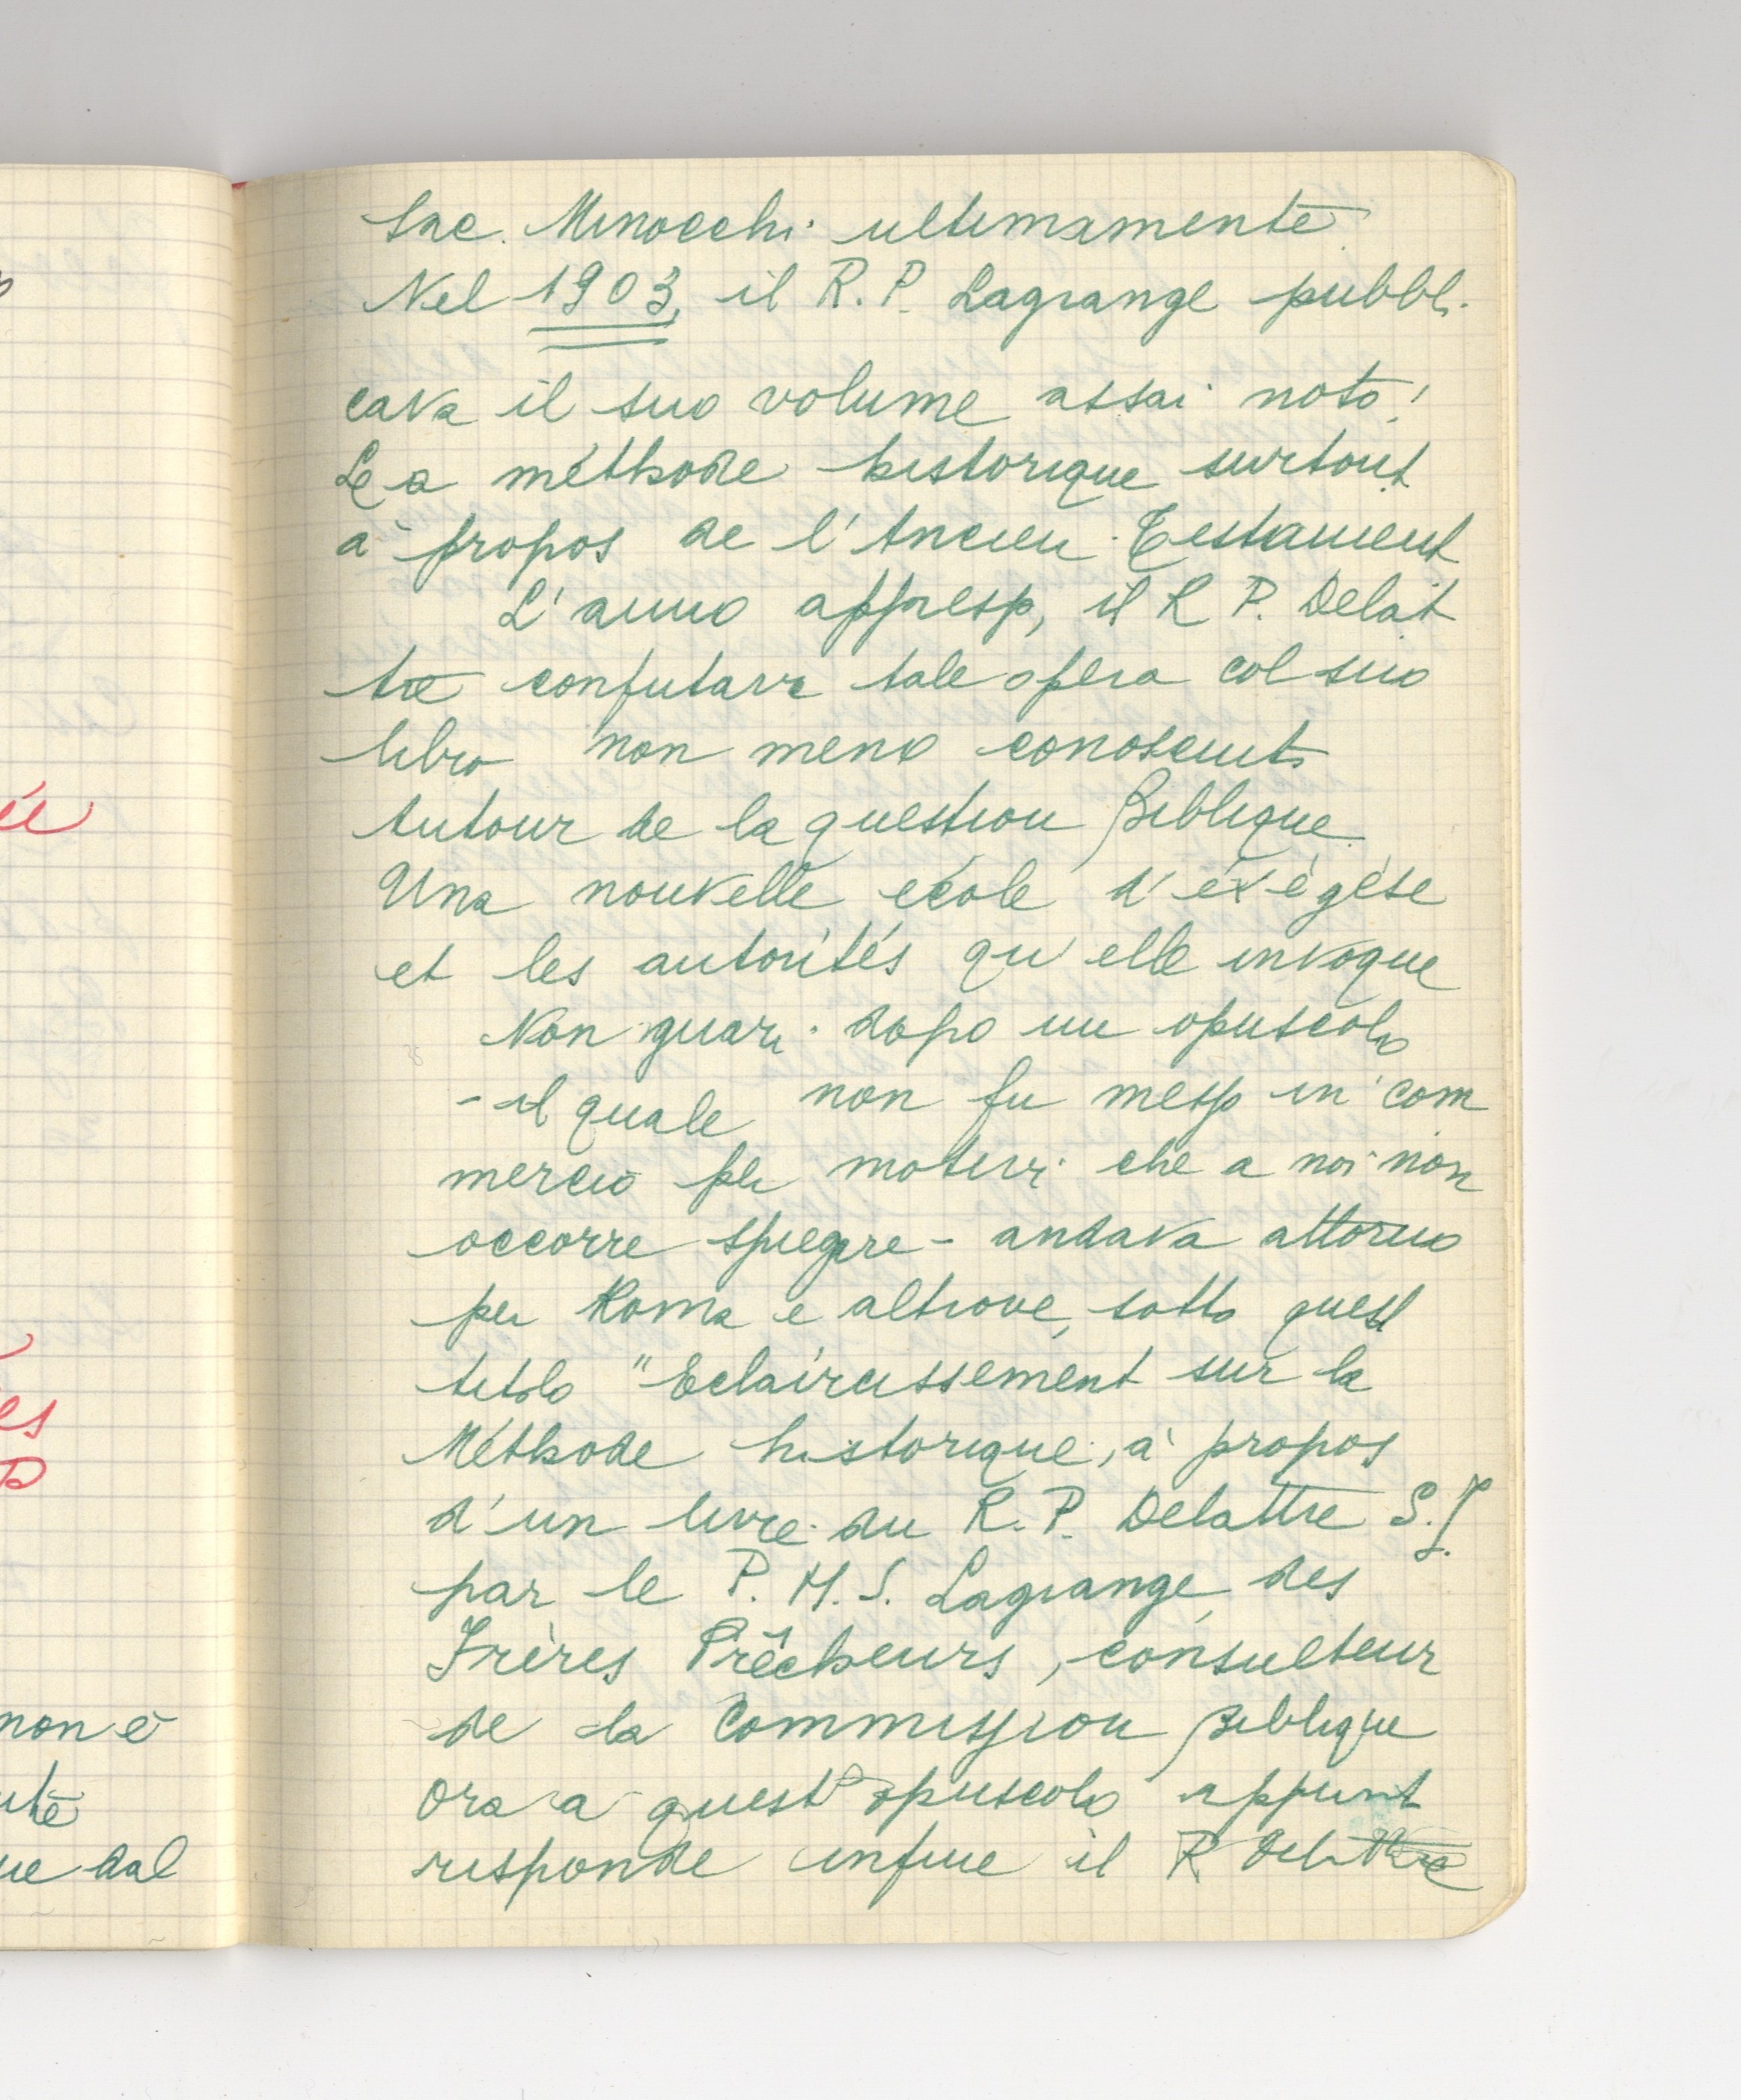 Sac. Minocchi ultimamente.
Nel 1903, il R. P. Lagrange pubbli
cava il suo volume assai noto:
La méthode historique surtout
à propos de l'Ancien Testament
L'anno appresso, il R P. Delat
tre confutava tale opera col suo
libro non meno conosciuto
Autour de la question Biblique.
Una nouvelle école d'éxégése
et les autorités qu'elle invoque
Non guari dopo un opuscolo
- il quale non fu messo in com
mercio per motivi che a noi non
occorre spiegare - andava attorno
per Roma e altrove, sotto quest
titolo "Eclaircissement sur la
Méthode historique, à propos
d'un livre du R. P. Delattre S.J.
par le P. M. J. Lagrange, des
Frères Prêcheurs, consulteur
de la Commission Biblique
Ora a questo opuscolo appunt
risponde infine il R Delattre
non è
ue dal